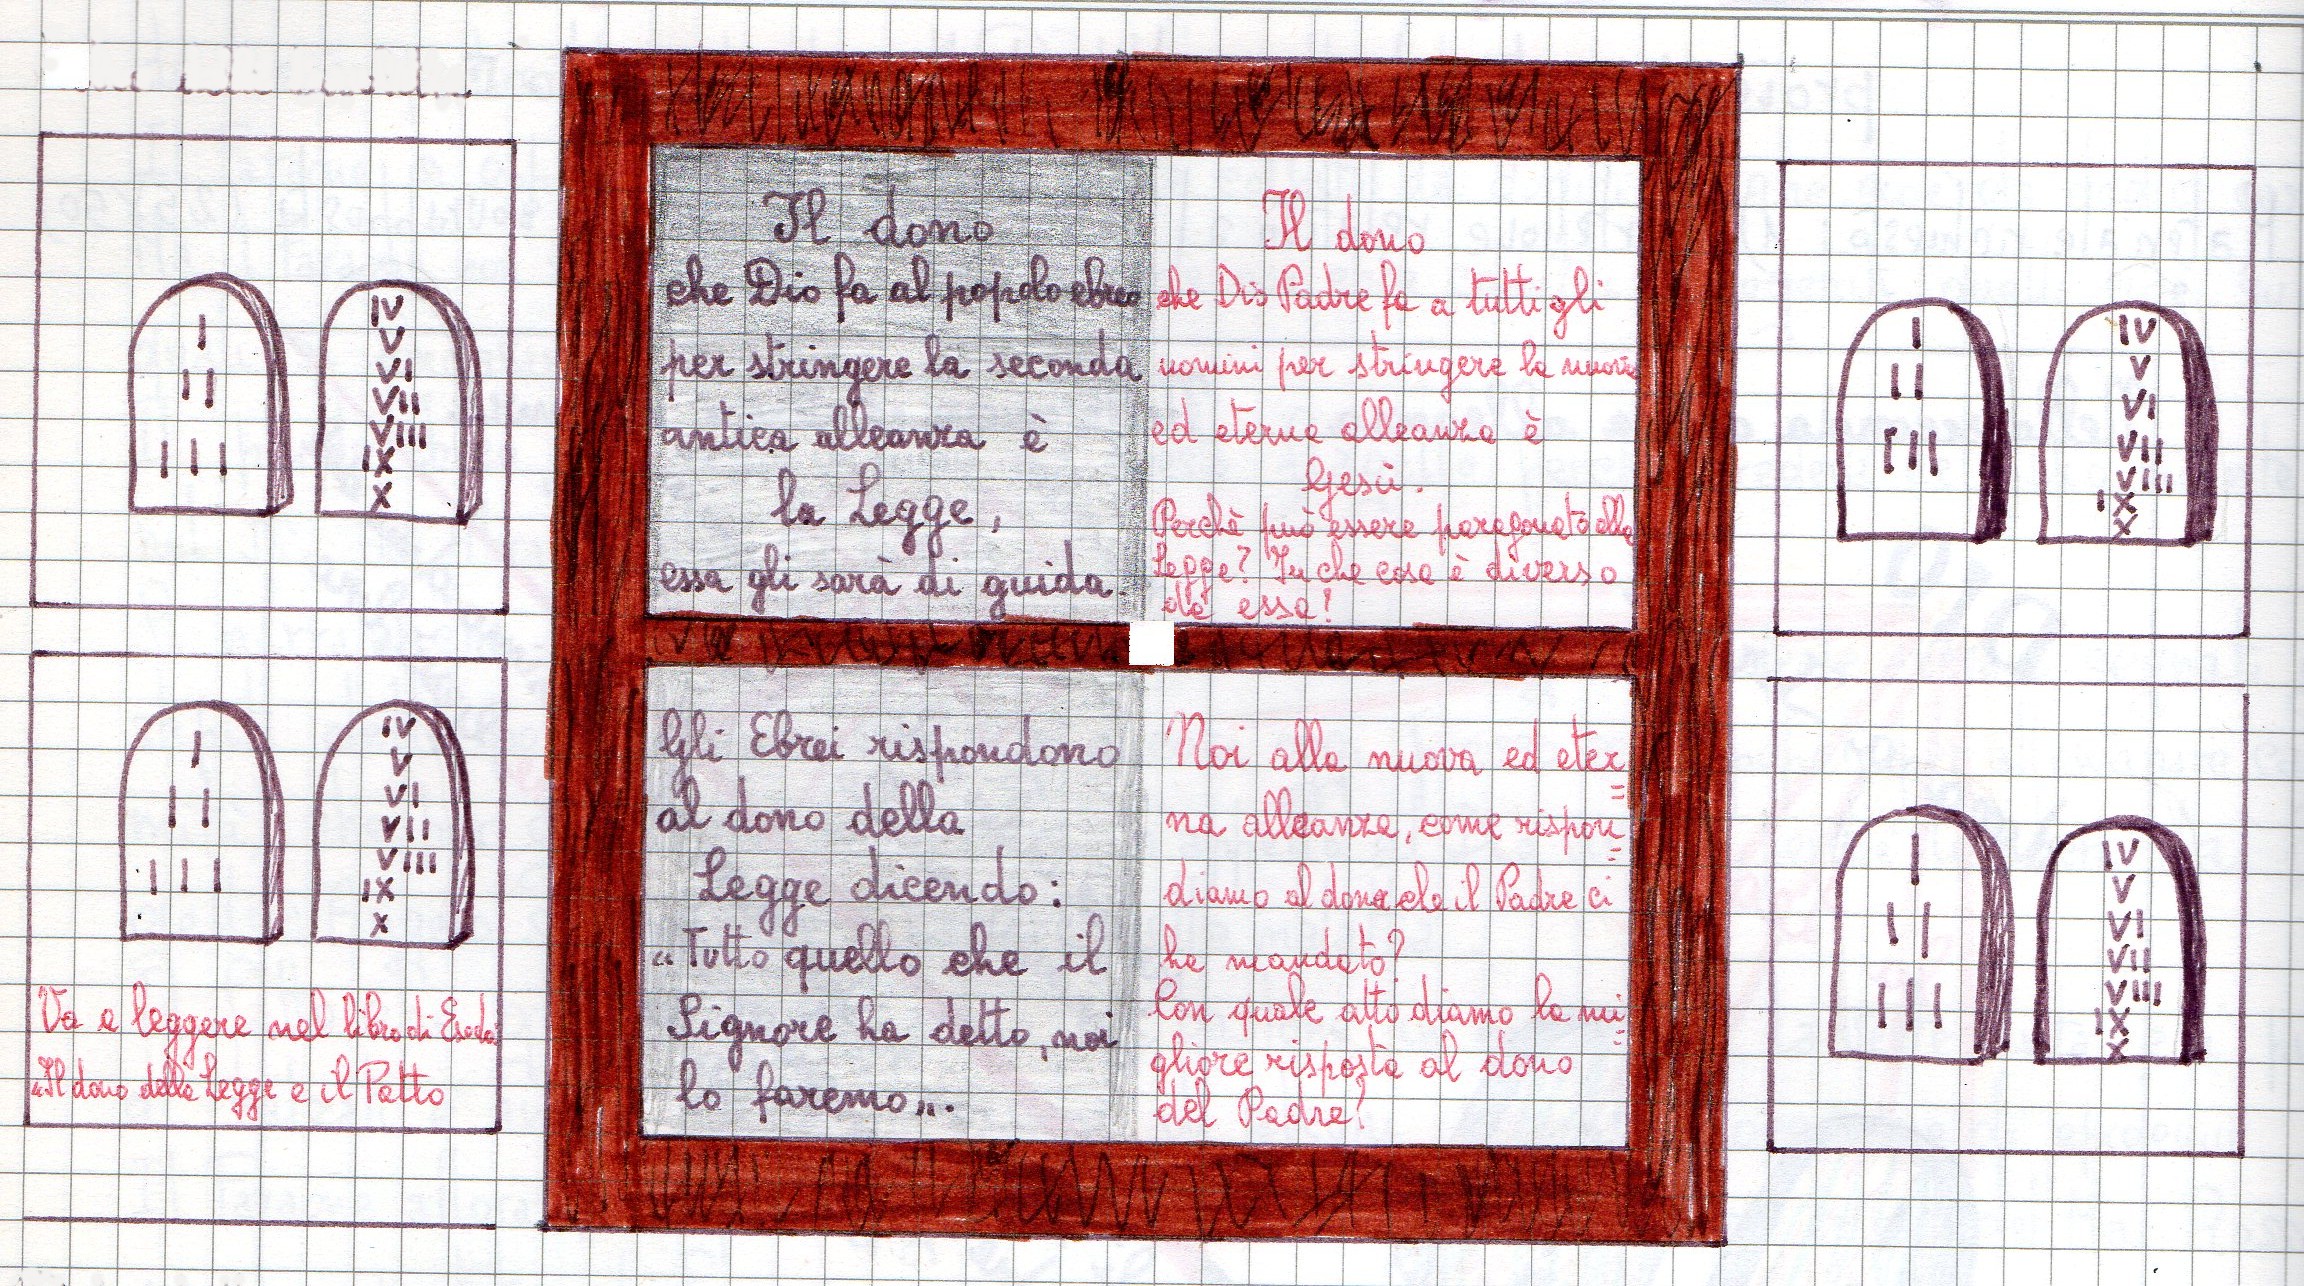 I
II
III
IV
V
VI
VII
VIII
IX
X
Il dono
che Dio fa al popolo ebreo
per stringere la seconda
antica alleanza è
la Legge,
essa gli sarà di guida.
Il dono
che Dio Padre fa a tutti gli
uomini per stringere la nuova
ed eterna alleanza è
Gesù.
Perchè può essere paragonato alla
Legge? In che cosa è diverso
da essa?
I
II
III
IV
V
VI
VII
VIII
IX
X
I
II
III
IV
V
VI
VII
VIII
IX
X
Va a leggere nel libro di Esodo
"Il dono della Legge e il Patto
Gli Ebrei rispondono
al dono della
Legge dicendo:
"Tutto quello che il
Signore ha detto, noi
lo faremo".
Noi alla nuova ed eter=
na alleanza, come rispon=
diamo al dono che il Padre ci
ha mandato?
Con quale atto diamo la mi=
gliore risposta al dono
del Padre?
I
II
III
IV
V
VI
VII
VIII
IX
X